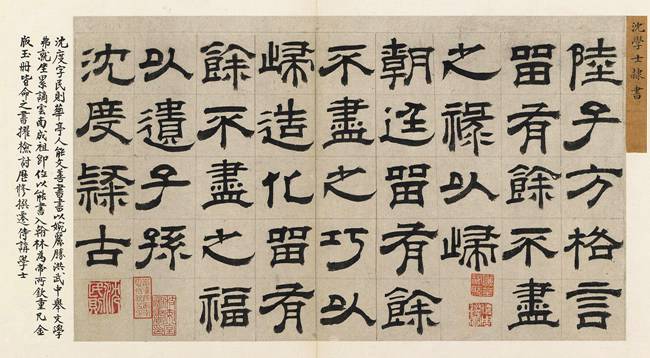 沈學士隸書
陸子方格言
留有餘不盡
之祿以歸
朝廷留有餘
不盡之巧以
歸造化留有
餘不盡之福
以遺子孫
沈度隸古
沈民則
沈度字民則華亭人能文善書書以婉麗勝洪武中舉文學
弗就坐累謫雲南成祖卽位以能書入翰林為帝所欽重凡金
版玉冊皆命之書擢檢討歷修撰遷侍講學士